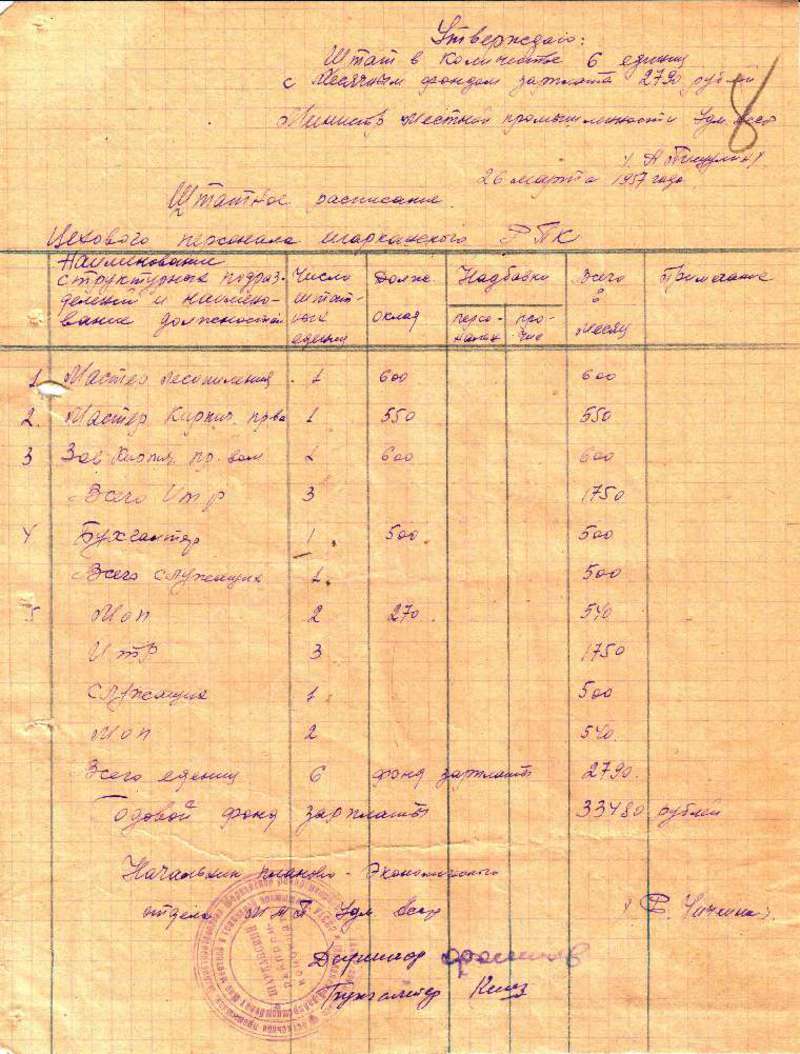 Утверждаю:
Штат в количестве 6 единиц
с месячным фондом зарплата 2790 рублей
8
Министр местной промышленности Удм. Асср
26 марта 1957 года
Штатное расписание
Цехового персонала шарканского РПК
Наименование структурных подразделений и наименование должностей
Число штатных единиц
Долж. оклад
Надбавки
персональн
прочие
Всего в месяц
Примечание
1 Мастер лесопиления 1 600 600
2. Мастер Кирпич. пр-ва 1 550 550
3 Зав. пр. вом 1 600 600
Всего Итр 3 1750
4 Бухгалтер 1 500 500
Всего служащих 1 500
5 Моп 2 270 540
Итр 3 1750
служащих 1 500
Моп 2 540
Всего едениц 6 фонд зарплаты 2790
Годовой фонд зарплаты 33480 рублей
Начальник планово-Экономического
отдела МТП Удм. Асср
Директор
Бухгалтер